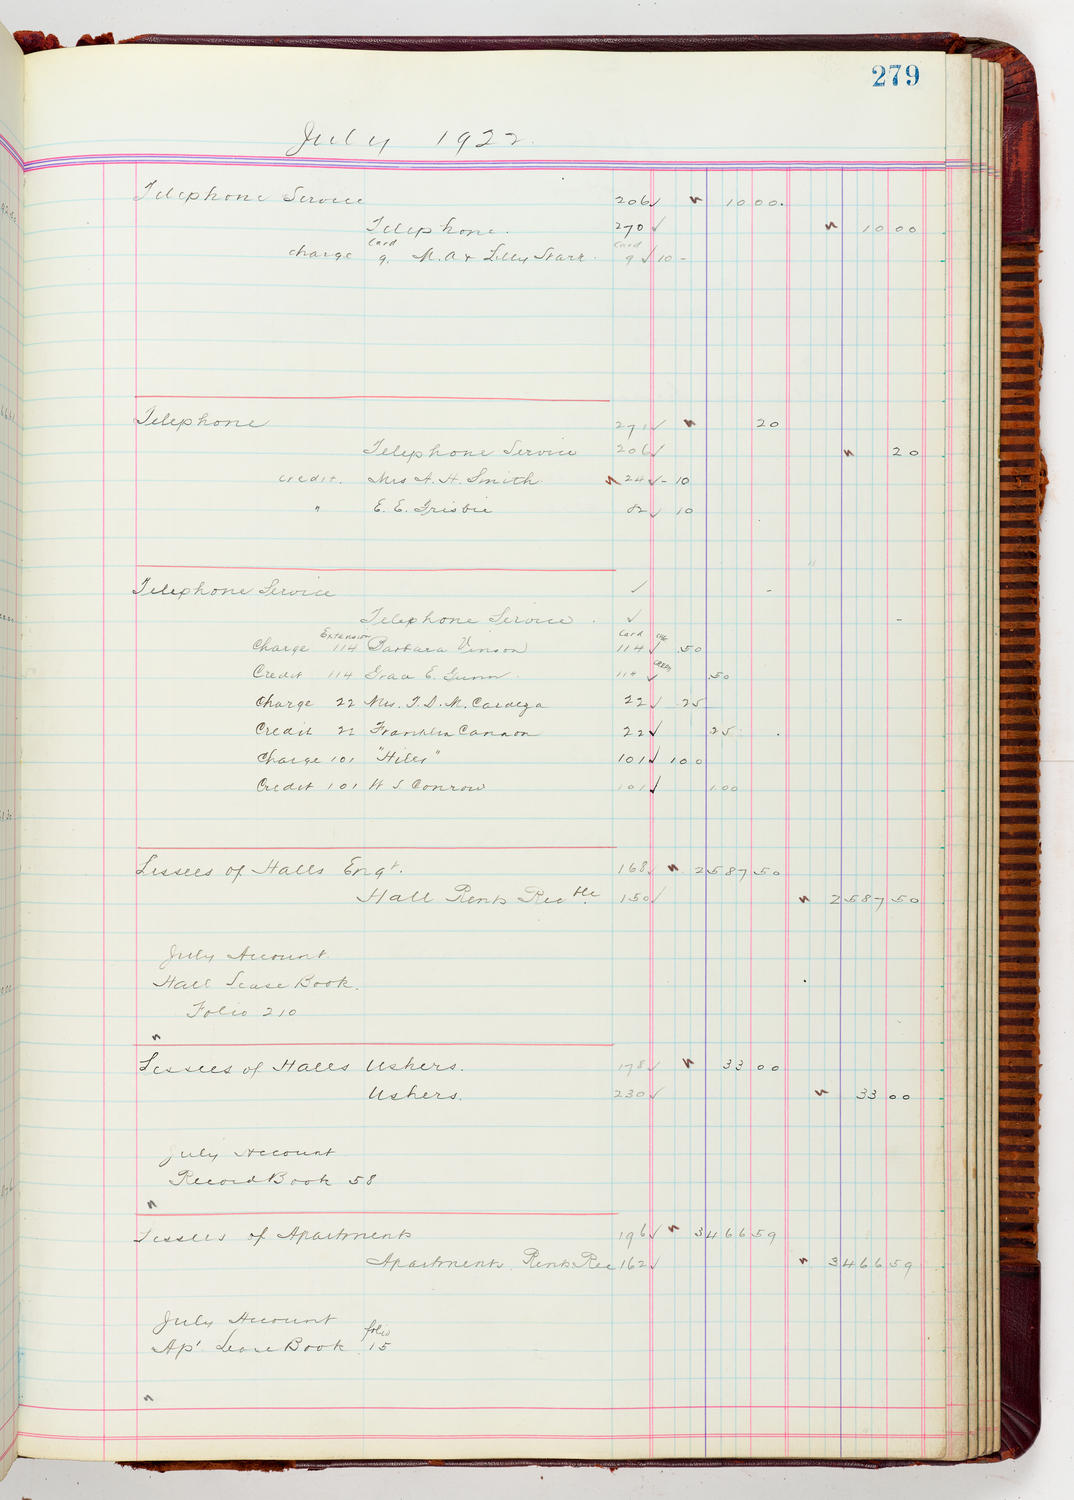 279
July 1922.
Telephone Service 206 ✓ 10 00.
Telephone. 270 ✓ 10 00
charge Card 9. M. A & Lilly Starr. Card 9 ✓ 10 -
Telephone 271 ✓ 20
Telephone Service 206 ✓ 20
credit. Mrs A. H. Smith 24 ✓ - 10
" E. E. Frisbie 82 ✓ 10
Telephone Service ✓ -
Telephone Service. ✓ -
Charge Extension 114 Barbara Vinson Card 114 ✓ .50
Credit 114 E. Gunn. 114 ✓ .50
Charge 22 Mrs. T. D. M. Cardeza 22 ✓ .25
Credit 22 Franklin Cannon 22 ✓ 25
Charge 101 "Hiles" 101 ✓ 1 00
Credit 101 H S Conrow 101 ✓ 1.00
Lessees of Halls Engt. 168 ✓ 2587 50
Hall Rents Rec ble. 150 ✓ 2587 50
July Account.
Hall Lease Book.
Folio 210
Lessees of Halls Ushers. 178 ✓ 33 00
Ushers. 230 ✓ 33 00
July Account
Record Book 58
Lessees of Apartments 196 ✓ 3466 59
Apartments. Rents Rec 162 ✓ 3466 59
July Account
Ap' Lease Book folio 15